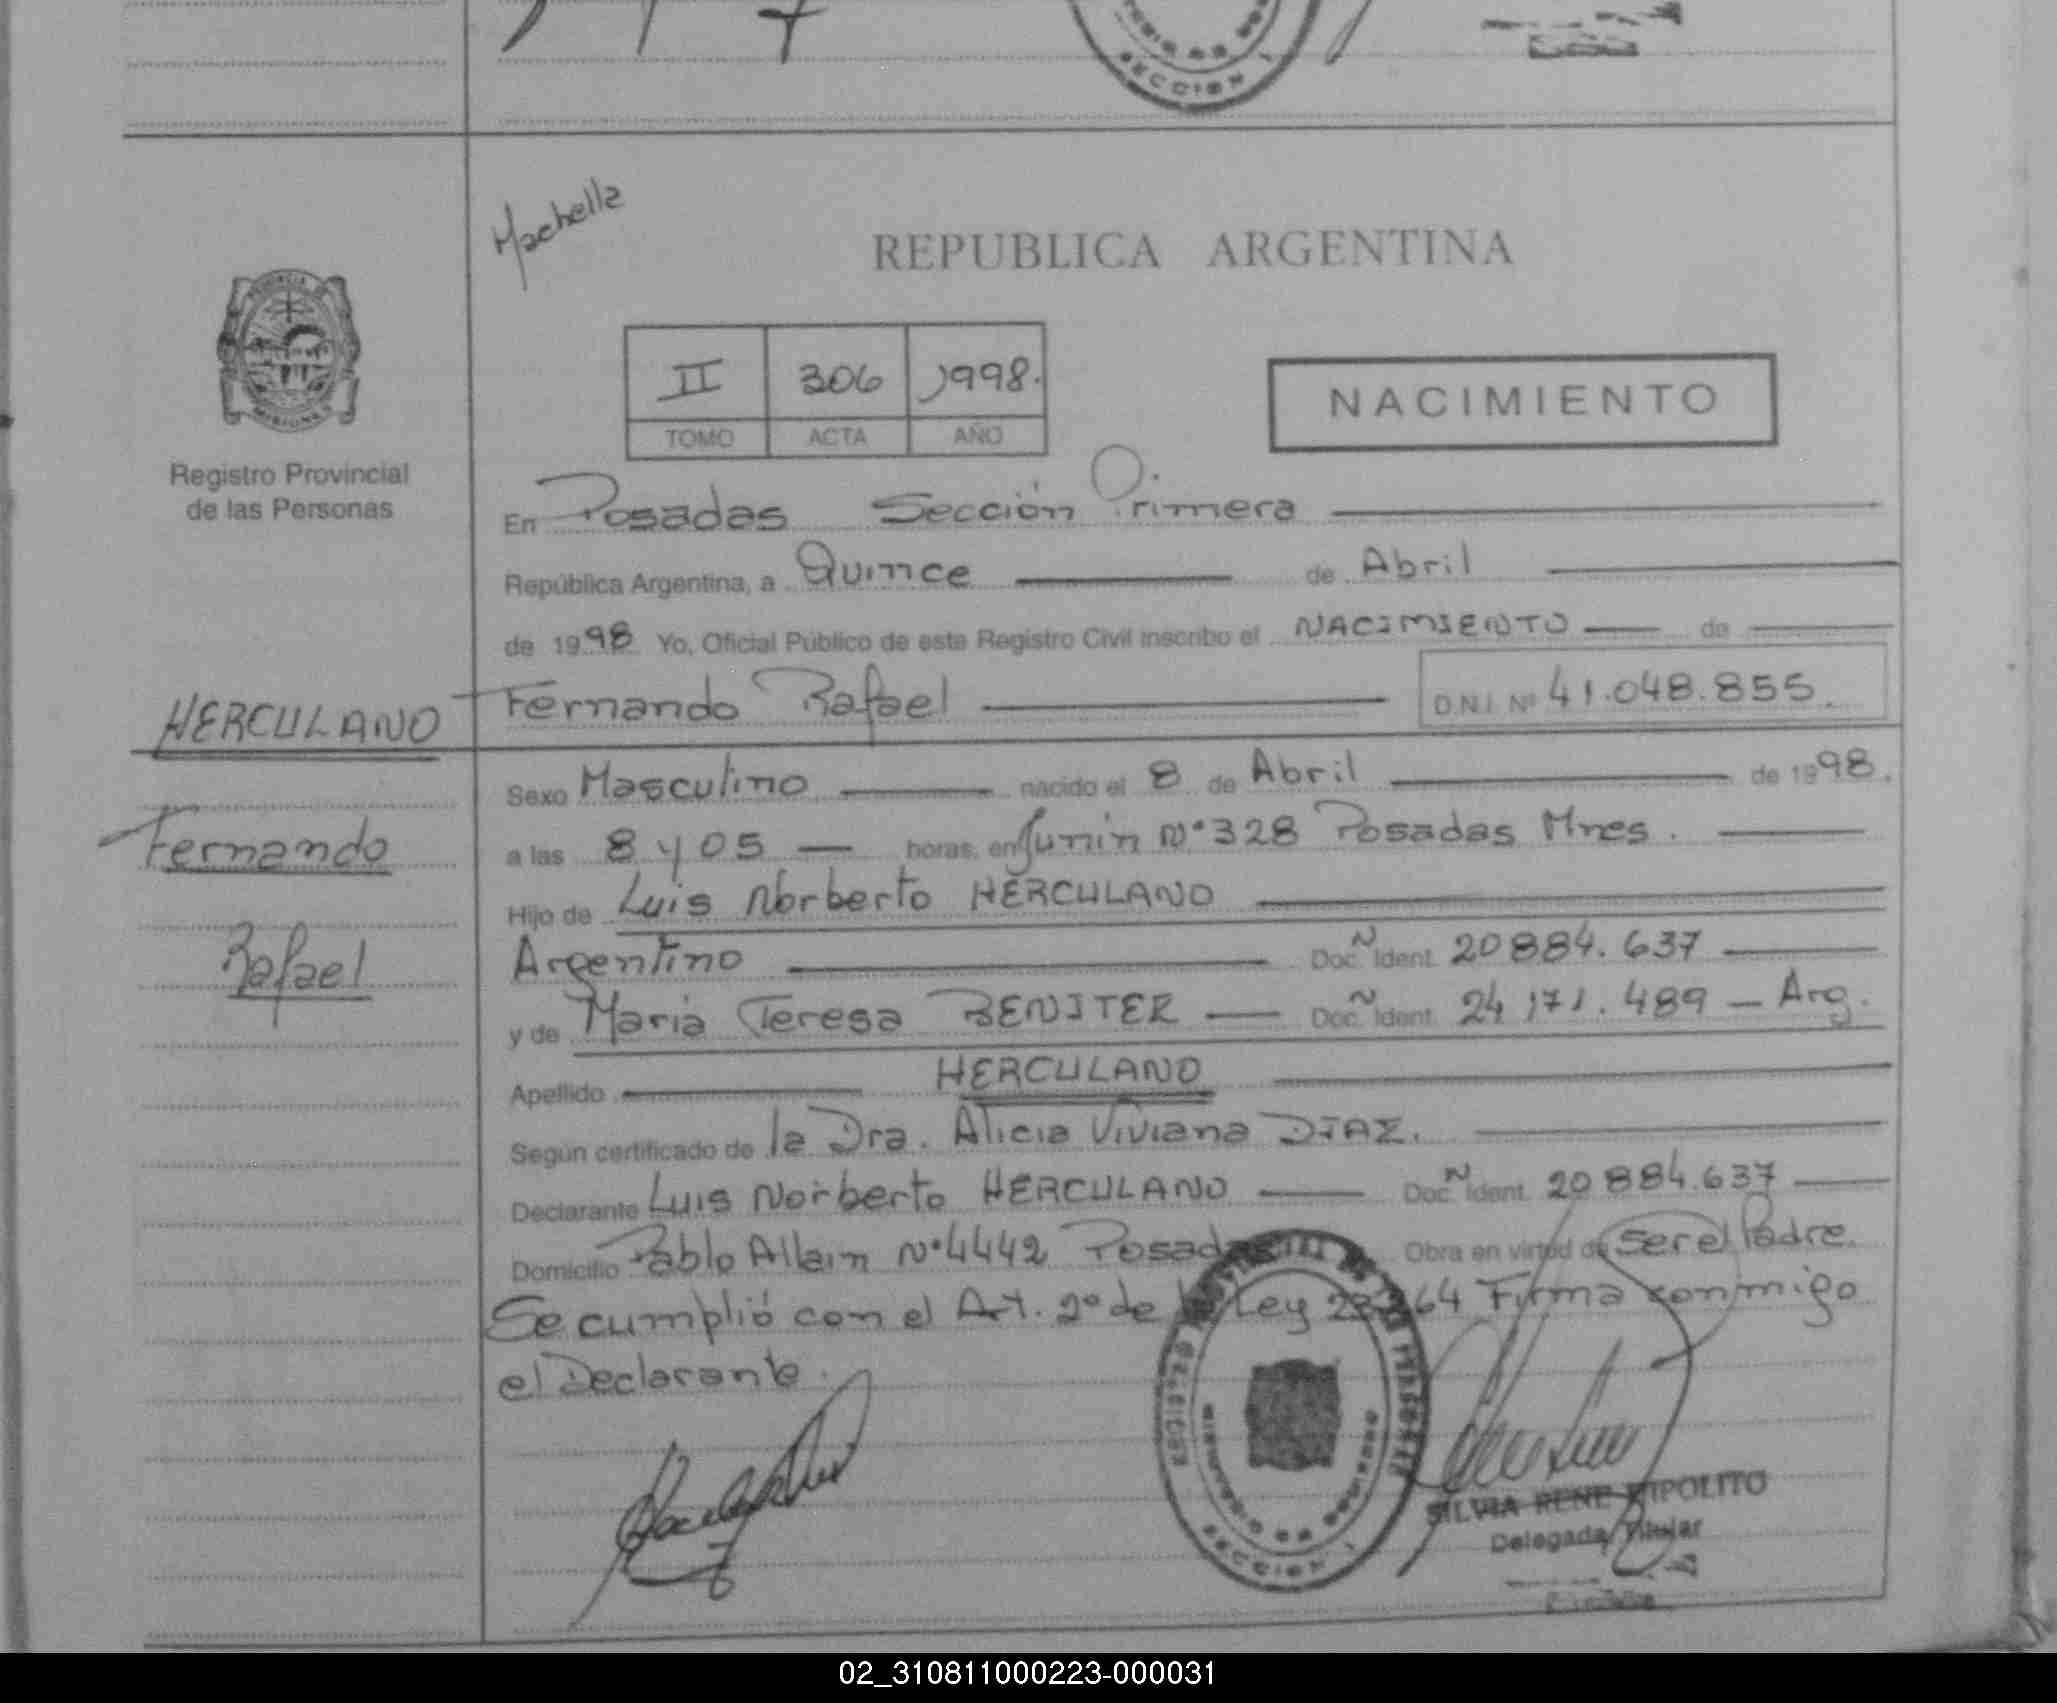 SECCION 1
Machella
REPUBLICA ARGENTINA
PROVINCIA DE
MISIONES
II 306 1998.
TOMO ACTA AÑO
NACIMIENTO
Registro Provincial
de las Personas
En Posadas Sección Primera
República Argentina, a Quince de Abril
de 1998 Yo, Oficial Público de este Registro Civil inscribo el NACIMIENTO de
HERCULANO Fernando Rafael D.N.I. Nº 41.048.855.
Sexo Masculino nacido el 8 de Abril de 1998.
Fernando
a las 8 y 05 horas, en Junin Nº 328 Posadas Mnes.
Hijo de Luis Norberto HERCULANO
Rafael
Argentino Doc. Ident. 20884.637
y de Maria Teresa BENITEZ Doc. Ident. 24171.489 - Arg.
Apellido HERCULANO
Según certificado de la Dra. Alicia Viviana DIAZ.
Declarante Luis Norberto HERCULANO Doc. Ident. 20884.637
Domicilio Pablo Allain Nº 4442 Posadas Obra en virtud de ser el Padre.
Se cumplió con el Art. 2º de la Ley 64 Firma conmigo
el Declarante.
SECCION 1
SILVIA RENE HIPOLITO
Delegada Titular
02_310811000223-000031